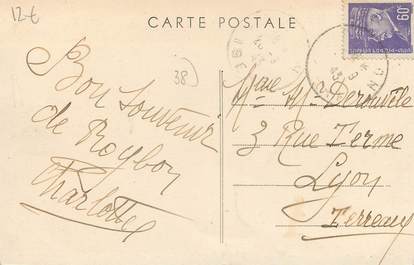 12€
CARTE POSTALE
60c
38
Bon Souvenir
de Roybon
Charlotte
Mme M. Derouville
3 Rue Terme
Lyon
Terreaux